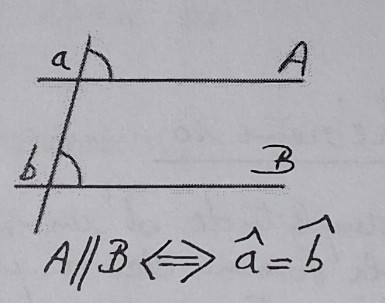 a A
b B
A//B <=> â = b̂